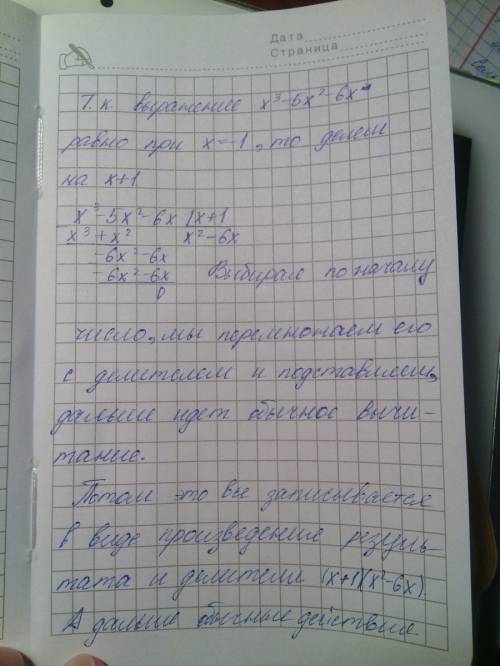 Дата
Страница
Т.к. выражение x³-5x²-6x
равно при x=-1, то делем
на x+1
x³-5x²-6x | x+1
x³+x² x²-6x
-6x²-6x
-6x²-6x Выбирая по началу
0
число, мы перемножаем его
с делителем и подставляем,
дальше идет обычное вычи-
тание.
Потом это все записывается
в виде произведение резуль-
тата и делителя (x+1)(x²-6x)
А дальше обычные действия.